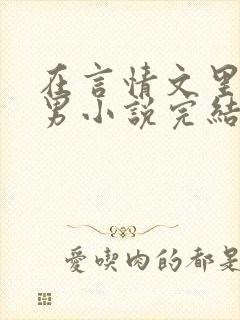 在言情文里
男小說完結
愛喫肉的都是